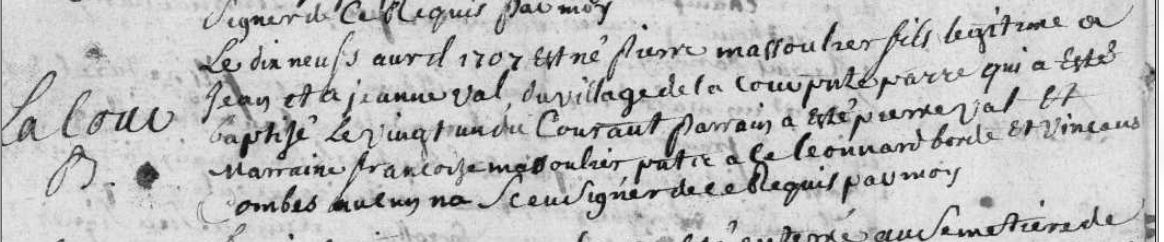 signer de ce Requis par moy
Le dix neufs avril 1707 est né pierre massoulier fils legitime a
Jean et a jeanne val, du village de la cour pnte parre qui a esté
La Cour
baptisé Le vingt un du Courant parrain a esté pierre val et
B.
Marraine francoize massoulier pntce a ce leonnard borde et vincens
Combes aucun na sceu signer de ce Requis par moy
enterré au semetiere de